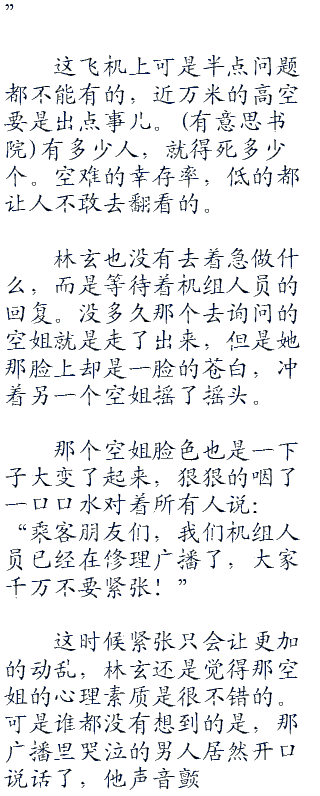 ”
这飞机上可是半点问题
都不能有的，近万米的高空
要是出点事儿。(有意思书
院)有多少人，就得死多少
个。空难的幸存率，低的都
让人不敢去翻看的。
林玄也没有去着急做什
么，而是等待着机组人员的
回复。没多久那个去询问的
空姐就是走了出来，但是她
那脸上却是一脸的苍白，冲
着另一个空姐摇了摇头。
那个空姐脸色也是一下
子大变了起来，狠狠的咽了
一口口水对着所有人说：
“乘客朋友们，我们机组人
员已经在修理广播了，大家
千万不要紧张！”
这时候紧张只会让更加
的动乱，林玄还是觉得那空
姐的心理素质是很不错的。
可是谁都没有想到的是，那
广播里哭泣的男人居然开口
说话了，他声音颤